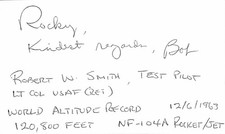 Rocky,
Kindest regards, Bob
ROBERT W. SMITH, TEST PILOT
LT COL USAF (RET)
WORLD ALTITUDE RECORD 12/6/1963
120,800 FEET NF-104A ROCKET/JET